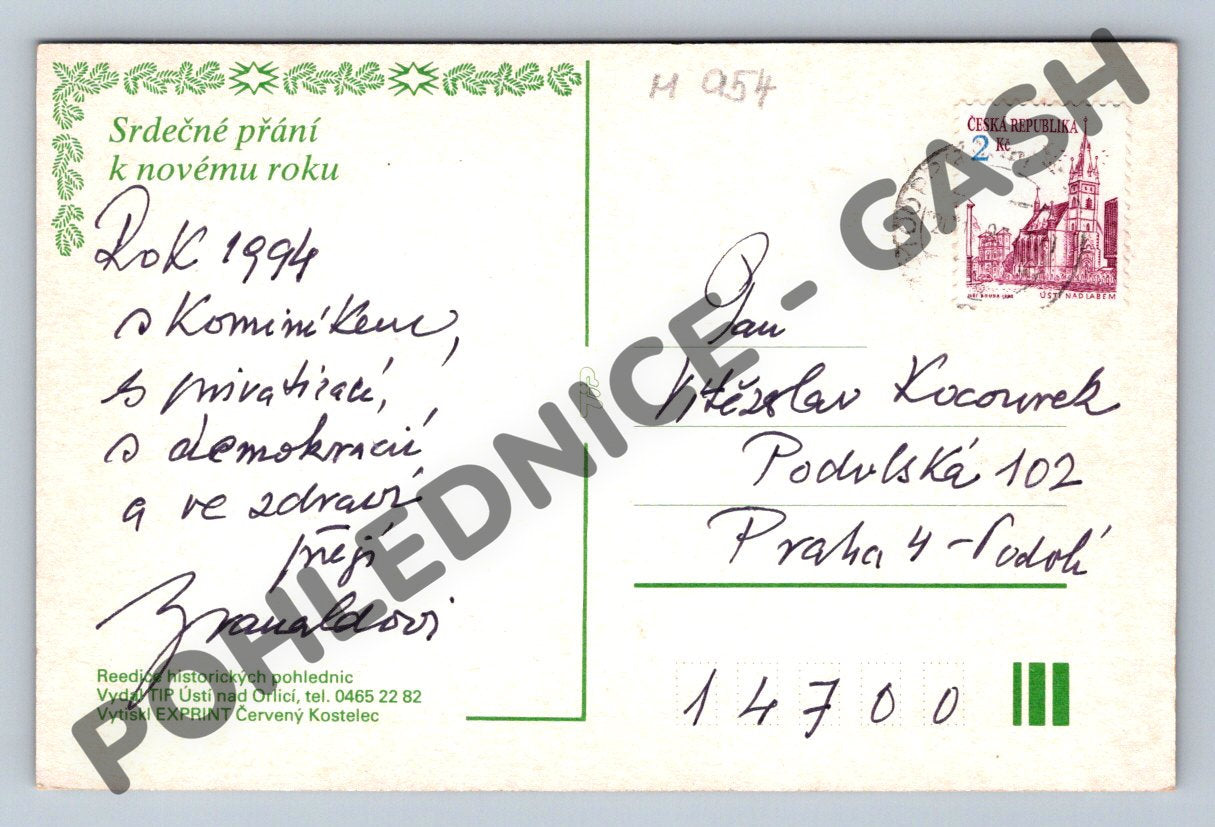 Srdečné přání
k novému roku
Rok 1994
s Kominíkem,
s privatizací,
s demokracií
a ve zdraví
přejí
Branaldovi
Reedice historických pohlednic
Vydal TIP Ústí nad Orlicí, tel. 0465 22 82
Vytiskl EXPRINT Červený Kostelec
TIP
M 954
ČESKÁ REPUBLIKA
2 Kč
JIŘÍ BOUDA 1993
ÚSTÍ NAD LABEM
Pan
Vítězslav Kocourek
Podolská 102
Praha 4 - Podolí
14700
POHLEDNICE - GASH